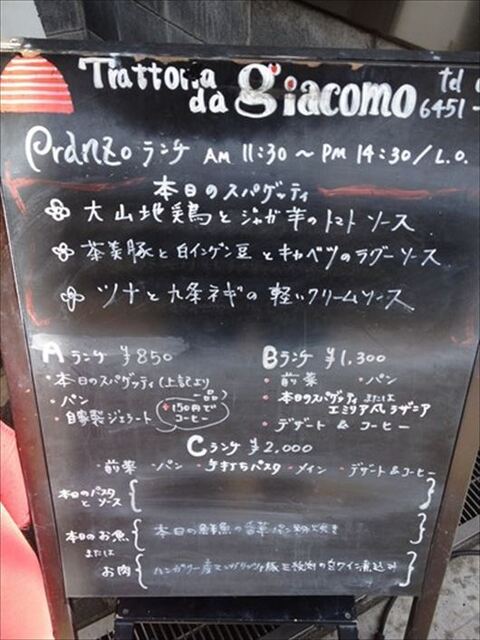 Trattoria
da giacomo
td
6451-
Pranzo ランチ AM 11:30 〜 PM 14:30/L.O.
本日のスパゲッティ
大山地鶏とジャガ芋のトマトソース
茶美豚と白インゲン豆とキャベツのラグーソース
ツナと九条ネギの軽いクリームソース
Aランチ ¥850
・本日のスパゲッティ(上記より
一品)
・パン
・自家製ジェラート
+150円で
コーヒー
Bランチ ¥1,300
・前菜 ・パン
・本日のスパゲッティ または
エミリア風ラザニア
・デザート & コーヒー
Cランチ ¥2,000
・前菜 ・パン ・手打ちパスタ ・メイン ・デザート&コーヒー
本日のパスタ
とソース
本日のお魚 本日の鮮魚の香草パン粉焼き
または
お肉 ハンガリー産マンガリッツァ豚 の白ワイン煮込み